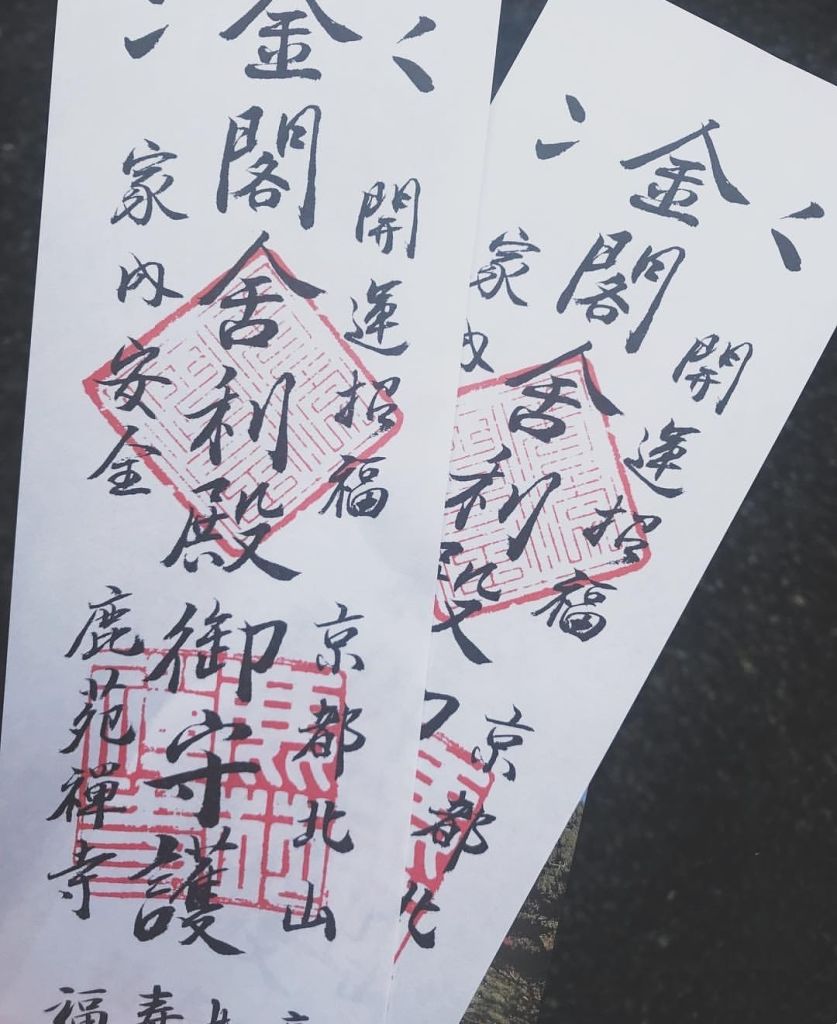 開運招福
京都北山
金閣舍利殿
御守護
家内安全
鹿苑禪寺
開運招福
京都北
金閣舍利殿
家内